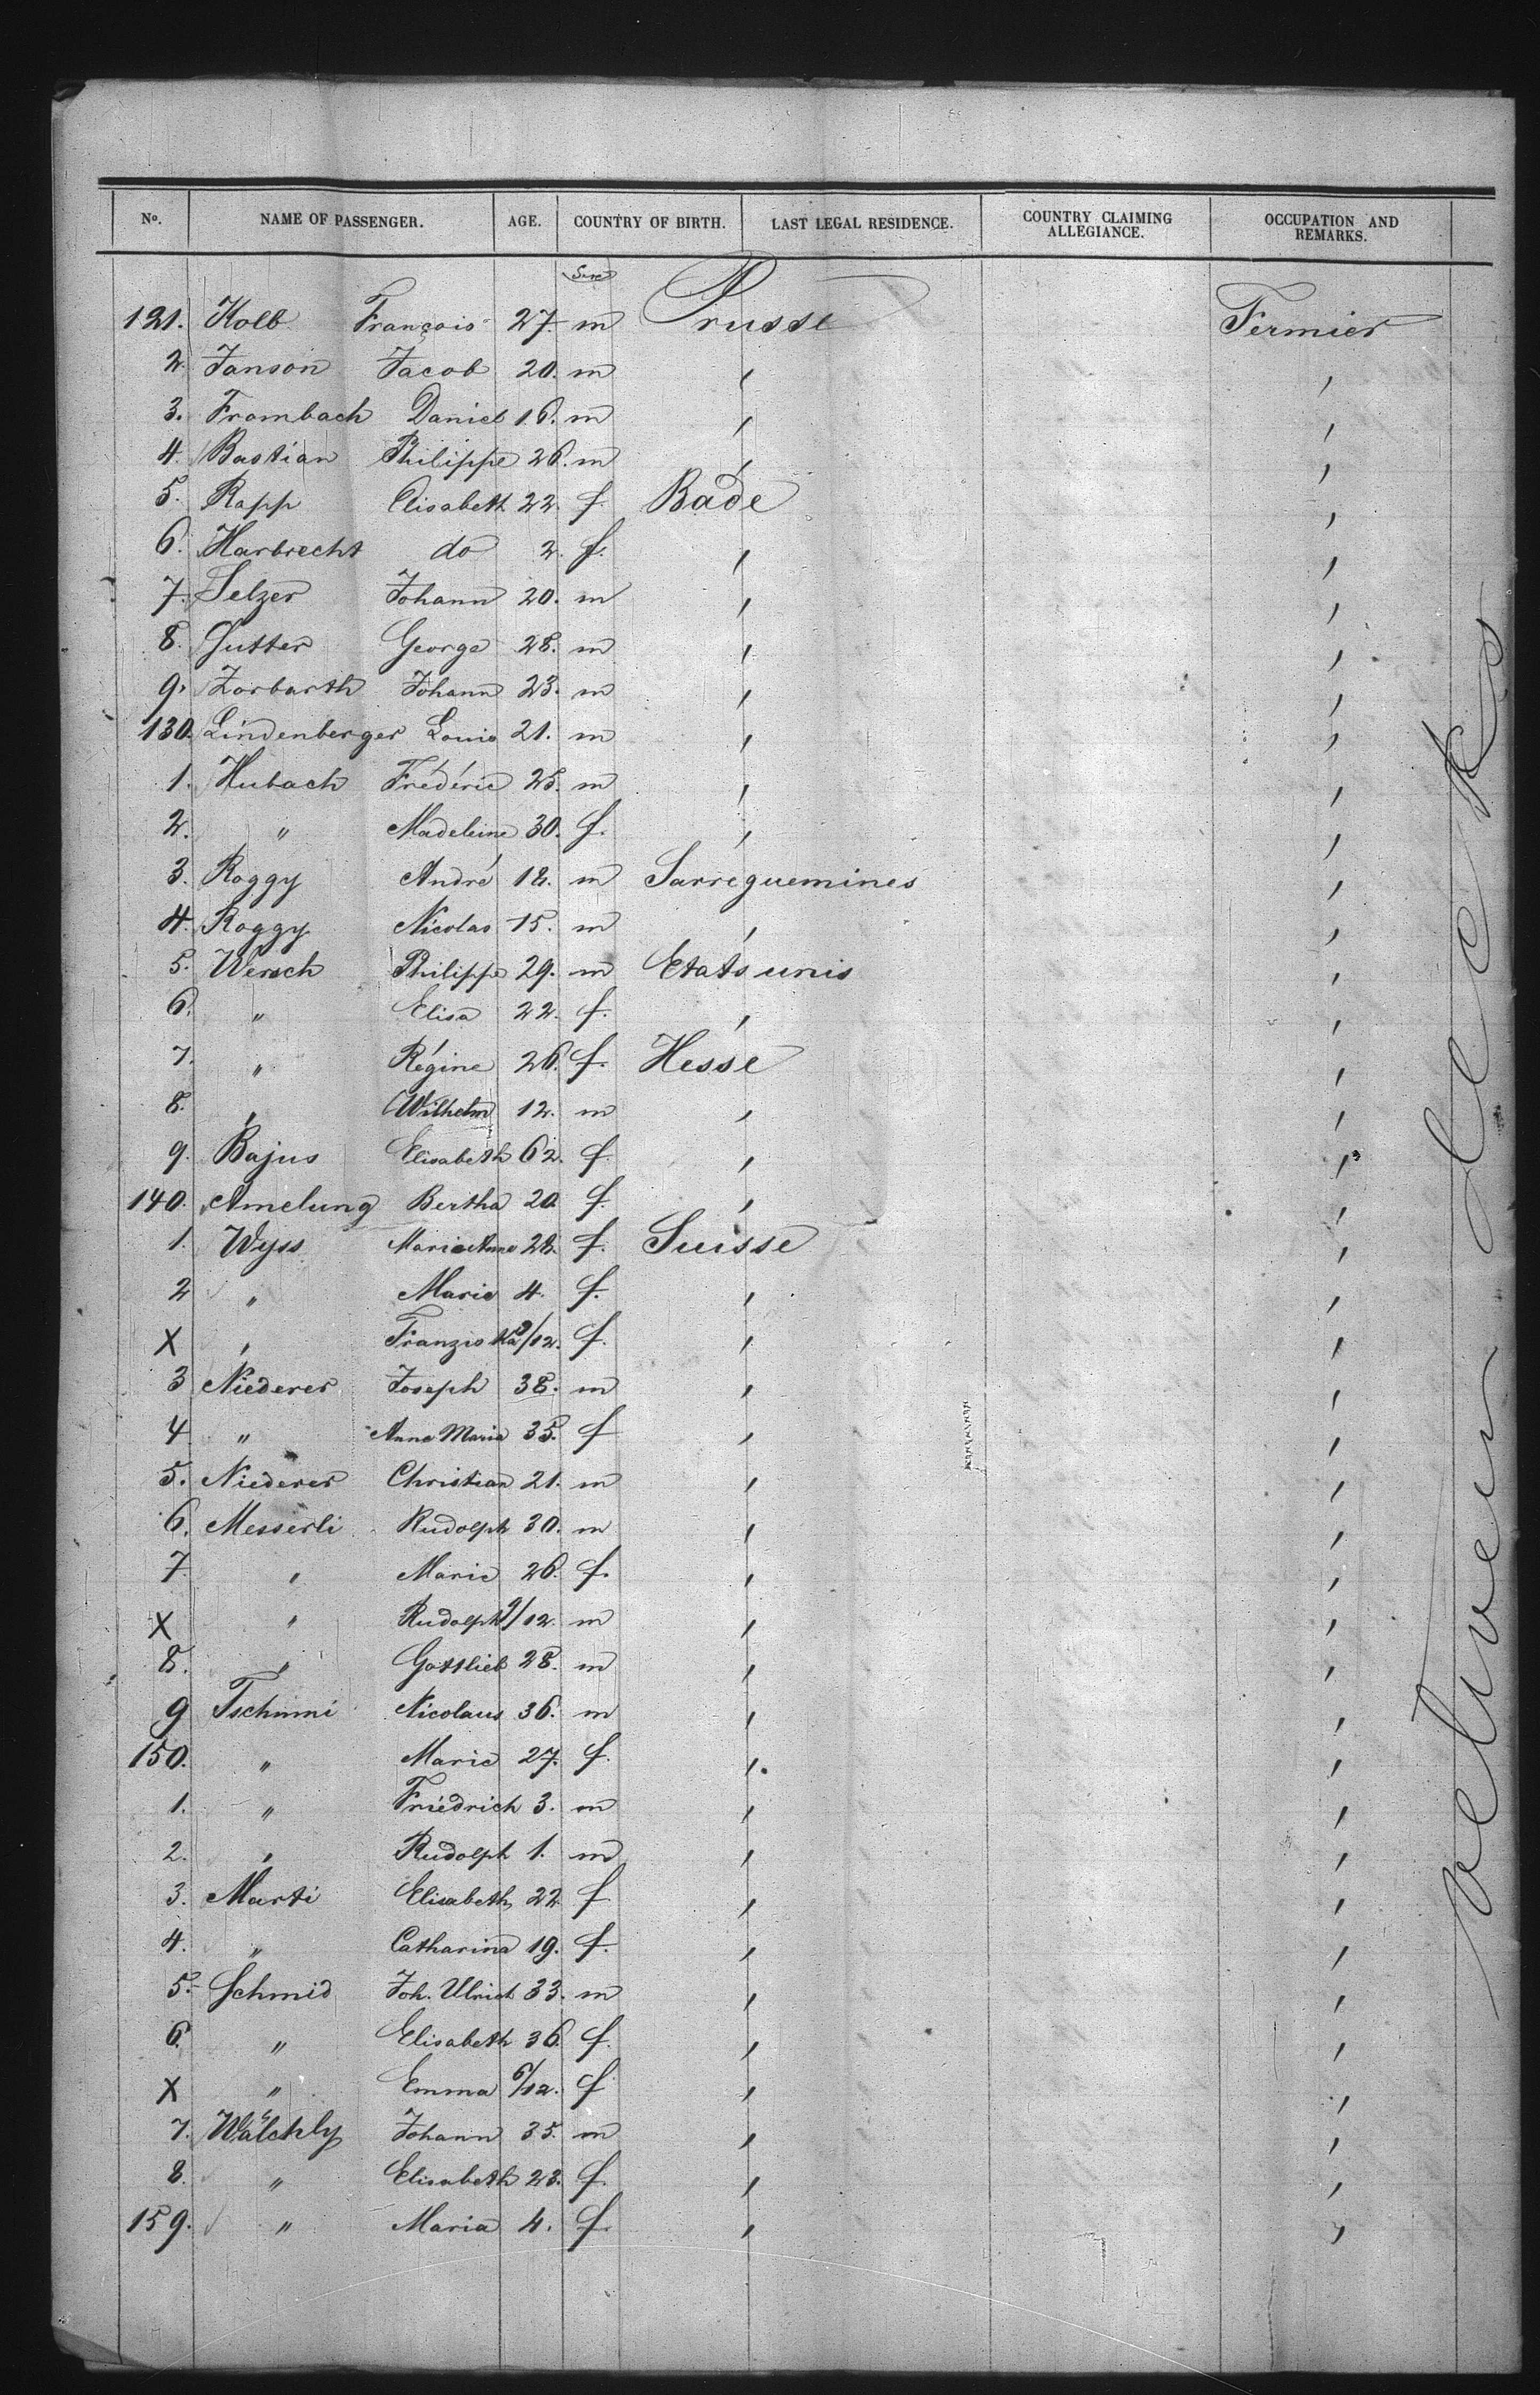 No. NAME OF PASSENGER. AGE. COUNTRY OF BIRTH. LAST LEGAL RESIDENCE. COUNTRY CLAIMING ALLEGIANCE. OCCUPATION AND REMARKS.
121. Kolb François 27. m Prusse Fermier
2. Janson Jacob 20. m , ,
3. Frombach Daniel 16. m , ,
4. Bastian Philippe 26. m , ,
5. Rapp Elisabeth 22. f. Bade ,
6. Harbrecht do 2. f. , ,
7. Selzer Johann 20. m , ,
8. Sutter George 28. m , ,
9. Zorbarth Johann 23. m , ,
130. Lindenberger Louis 21. m , ,
1. Hubach Frédéric 25. m , ,
2. " Madeleine 30. f. , ,
3. Roggy André 18. m Sarreguemines ,
4. Roggy Nicolas 15. m , ,
5. Wersch Philippe 29. m Etats unis ,
6. " Elisa 22. f. , ,
7. " Régine 26. f. Hesse ,
8. , Wilhelm 12. m , ,
9. Bajus Elisabeth 62. f. , ,
140. Amelung Bertha 20 f. , ,
1. Wyss Marie Anne 28. f. Suisse ,
2 " Marie 4. f. , ,
X , Franziska 9/12. f. , ,
3 Niederer Joseph 38. m , ,
4 " Anna Maria 35. f , ,
5. Niederer Christian 21. m , ,
6. Messerli Rudolph 30. m , ,
7. , Marie 26. f. , ,
X " Rudolph 9/12. m , ,
8. , Gottlieb 28. m , ,
9 Tschumi Nicolaus 36. m , ,
150. " Marie 27. f. , ,
1. " Friedrich 3. m , ,
2. , Rudolph 1. m , ,
3. Marti Elisabeth 22 f , ,
4. " Catharina 19. f. , ,
5. Schmid Joh. Ulrich 33. m , ,
6. " Elisabeth 36. f. , ,
X " Emma 6/12. f , ,
7. Wälchly Johann 35. m , ,
8. " Elisabeth 23. f. , ,
159. " Maria 4. f. , ,
between decks